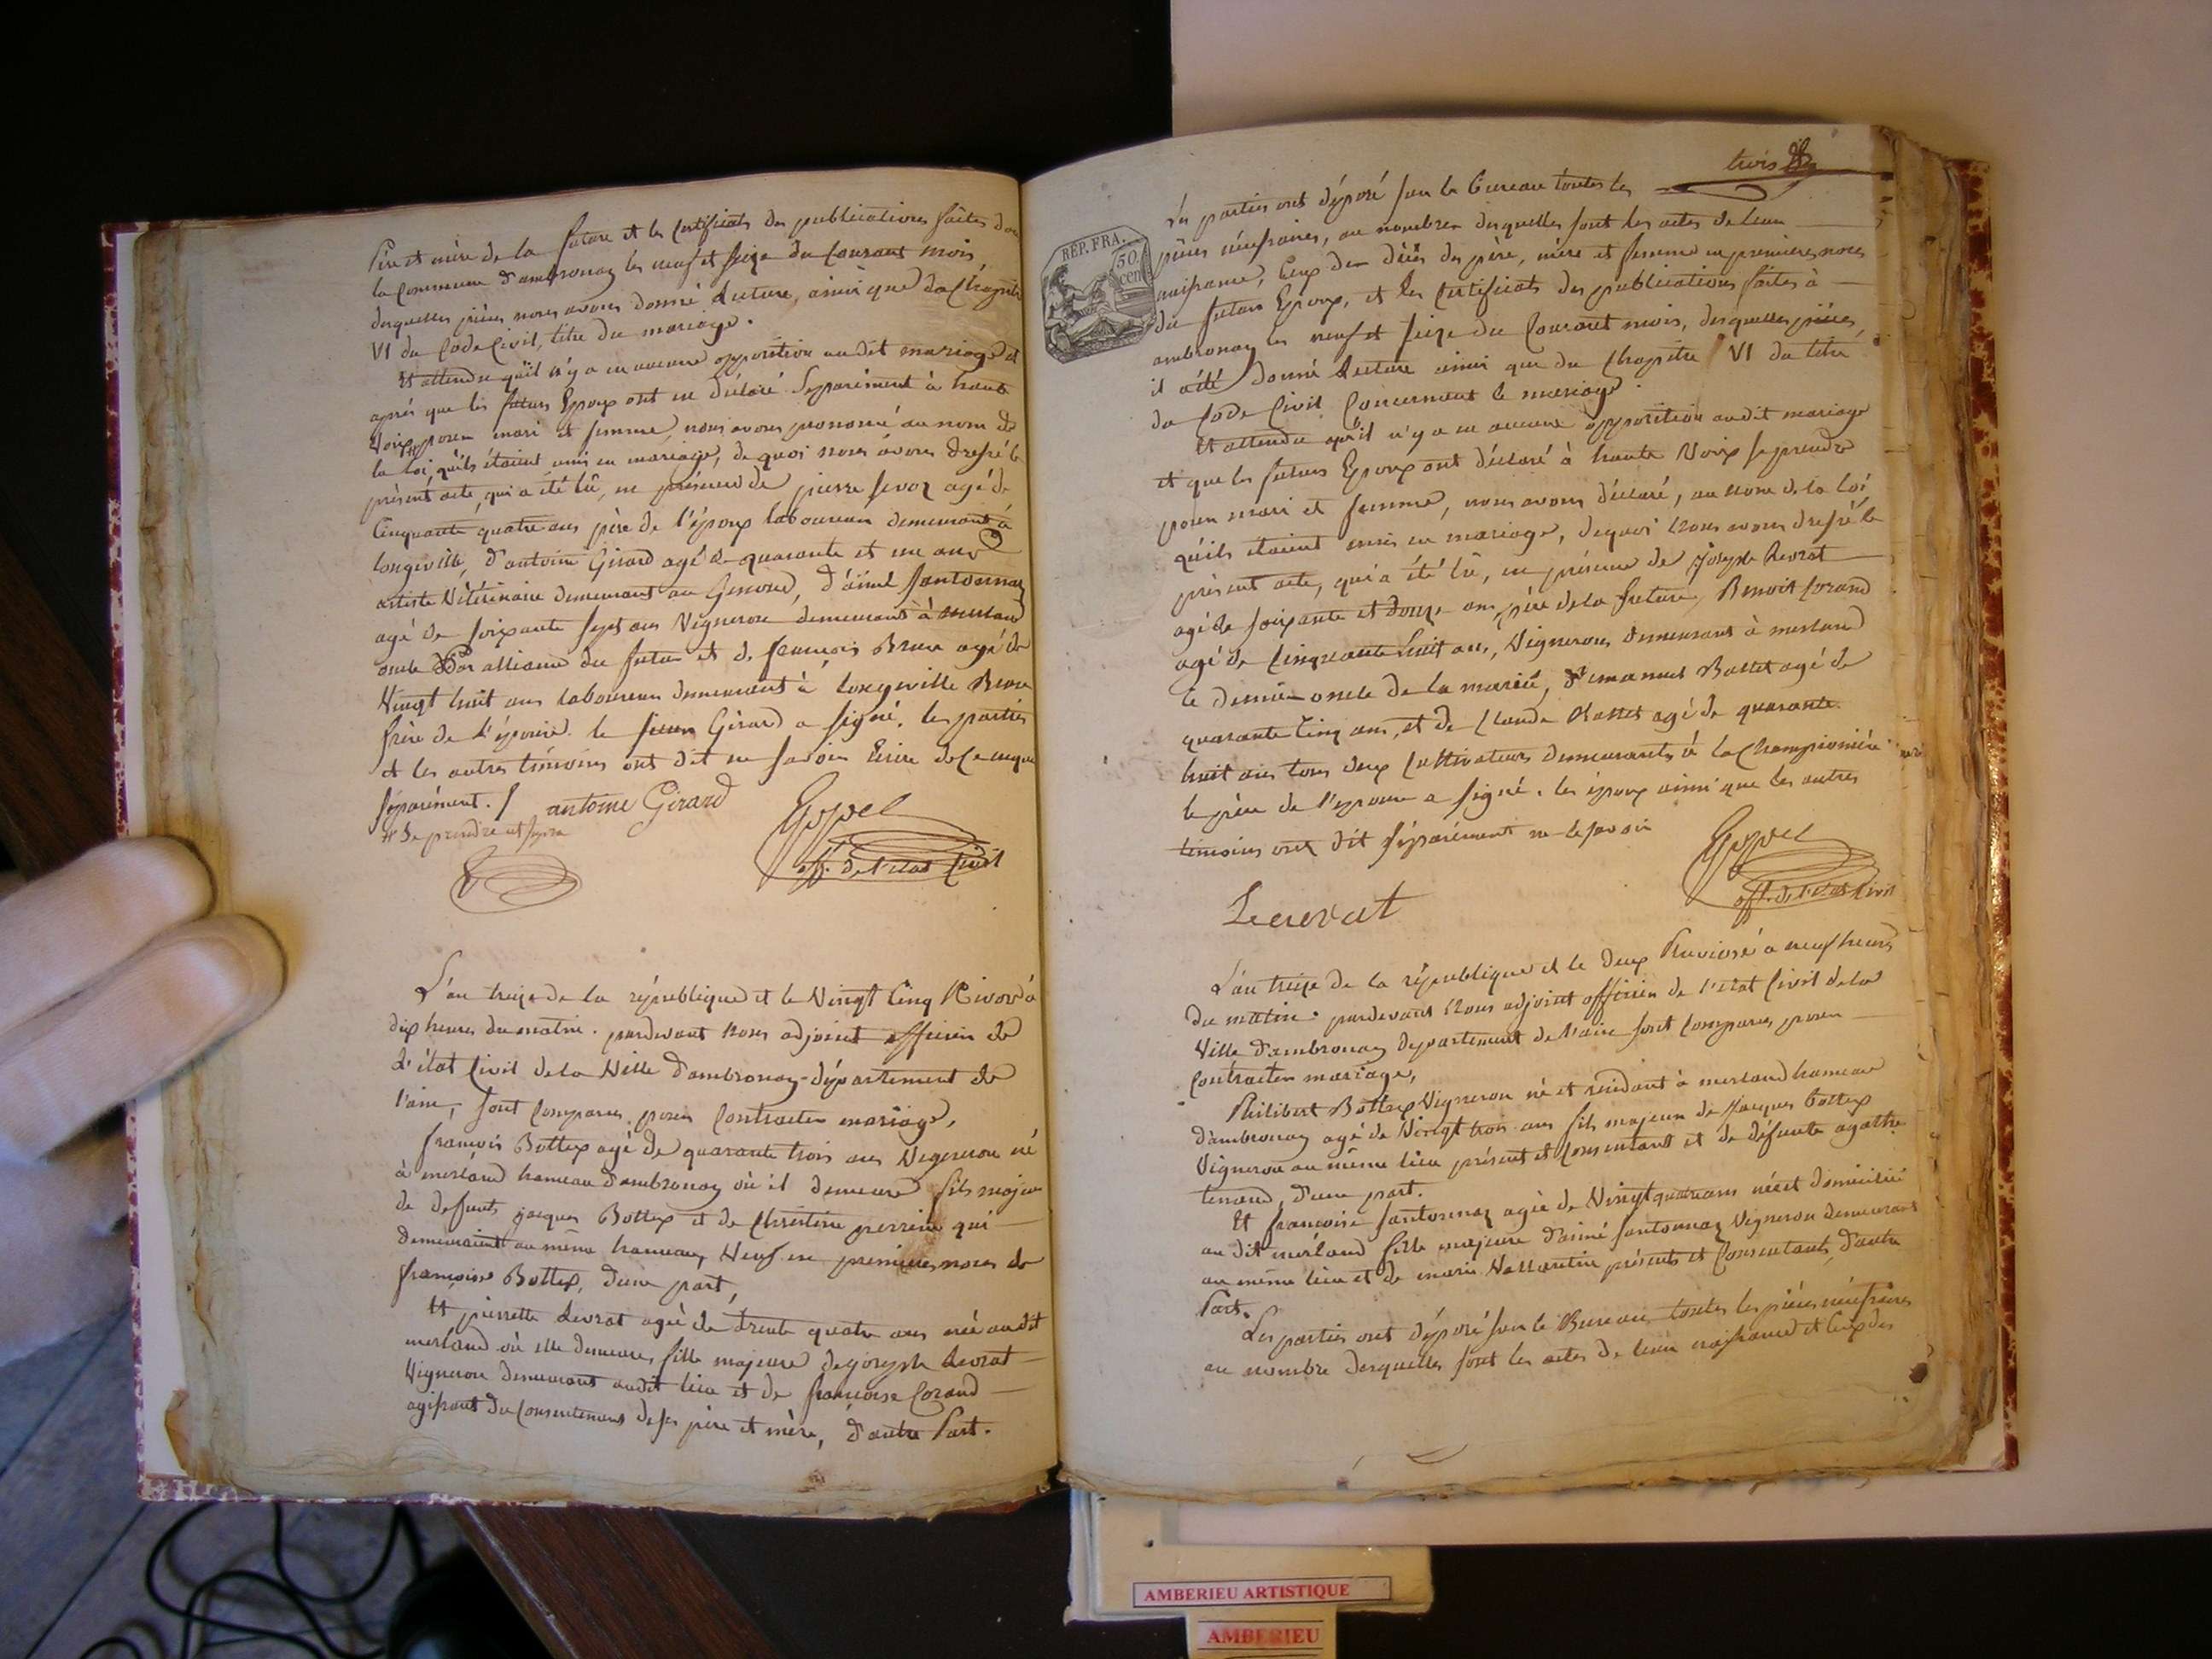 Père et mère de la future et les Certificats des publications faites dans
la Commune d'ambronay les neuf et seize du Courant mois,
desquelles pièces nous avons donné Lecture, ainsi que du Chapitre
VI du Code Civil, titre du mariage.
Et attendu qu'il n'y a eu aucune opposition audit mariage et
après que les futurs Epoux ont eu déclaré Séparément à haute
Voix pour mari et femme, nous avons prononcé au nom de
la loi, qu'ils étaient unis en mariage, de quoi nous avons dressé le
présent acte, qui a été lû, en présence de pierre agé de
Cinquante quatre ans père de l'époux laboureur demeurant à
longeville, d'antoine Girard agé de quarante et un ans
artiste Vétérinaire demeurant au , d'aimé fontonnaz
agé de soixante sept ans Vigneron demeurant à merland
oncle Par alliance du futur et de françois Brun agé de
Vingt huit ans laboureur demeurant à longeville
frère de l'épouse. le sieur Girard a signé, les parties
et les autres témoins ont dit ne savoir Ecrire de ce enquis
séparément. / antoine Girard
# Se prendre
Goppel
off. de l'état Civil
L'an treize de la république et le Vingt Cinq Nivose à
dix heures du matin. pardevant Nous adjoint officier de
L'état Civil de la Ville d'ambronay département de
l'ain, sont Comparus pour Contracter mariage,
françois Bottex agé de quarante trois ans Vigneron né
à merland hameau d'ambronay où il demeure fils majeur
de defunts jacques Bottex et de Christine perrine qui
demeuraient au même hameau, Veuf en premières noces de
françoise Bottex, d'une part,
Et pierrette Levrat agée de trente quatre ans née audit
merland où elle demeure, fille majeure de joseph Levrat
Vigneron demeurant audit lieu et de françoise Corand
agissant du Consentement de ses père et mère, d'autre Part.
trois
REP. FRA.
50
cent
Les parties ont déposé sur le bureau toutes les
pièces nécessaires, au nombre desquelles sont les actes de leur
naissance, Ceux des décès des père, mère et femme en premières noces
du futur Epoux, et les Certificats des publications faites à
ambronay les neuf et seize du Courant mois, desquelles pièces
il a été donné Lecture ainsi que du Chapitre VI du titre
du Code Civil Concernant le mariage.
Et attendu qu'il n'y a eu aucune opposition audit mariage
et que les futurs Epoux ont déclaré à haute Voix se prendre
pour mari et femme, nous avons déclaré, au nom de la loi
qu'ils étaient unis en mariage, de quoi Nous avons dressé le
présent acte, qui a été lû, en présence de Joseph Levrat
agé de soixante et douze ans, père de la future, Benoit Corand
agé de Cinquante huit ans, Vignerons demeurants à merland
le dernier oncle de la mariée, d'emanuel Bassets agé de
quarante Cinq ans, et de Claude agé de quarante
huit ans tous deux Cultivateurs demeurants à la Championnière
le père de l'epouse a signé. les époux ainsi que les autres
témoins ont dit séparément ne le savoir
Goppel
off. de l'état Civil
Leuvrat
L'an treize de la république et le deux Pluviose à neuf heures
du matin. pardevant Nous adjoint officier de l'etat Civil de la
Ville d'ambronay département de l'ain sont Comparus pour
Contracter mariage,
Philibert Bottex Vigneron né et résidant à merland hameau
d'ambronay agé de Vingt trois ans fils majeur de Jacques bottex
Vigneron au même lieu présent et Consentant et de défunte agathe
tenand, d'une part.
Et françoise fontonnaz agée de Vingt quatre ans née et domiciliée
au dit merland fille majeure d'aimé fontonnaz Vigneron demeurant
au même lieu et de marie présents et Consentants, d'autre
Part.
Les parties ont déposé sur le Bureau toutes les pièces nécessaires
au nombre desquelles sont les actes de leur naissance et Ceux des
AMBERIEU ARTISTIQUE
AMBERIEU